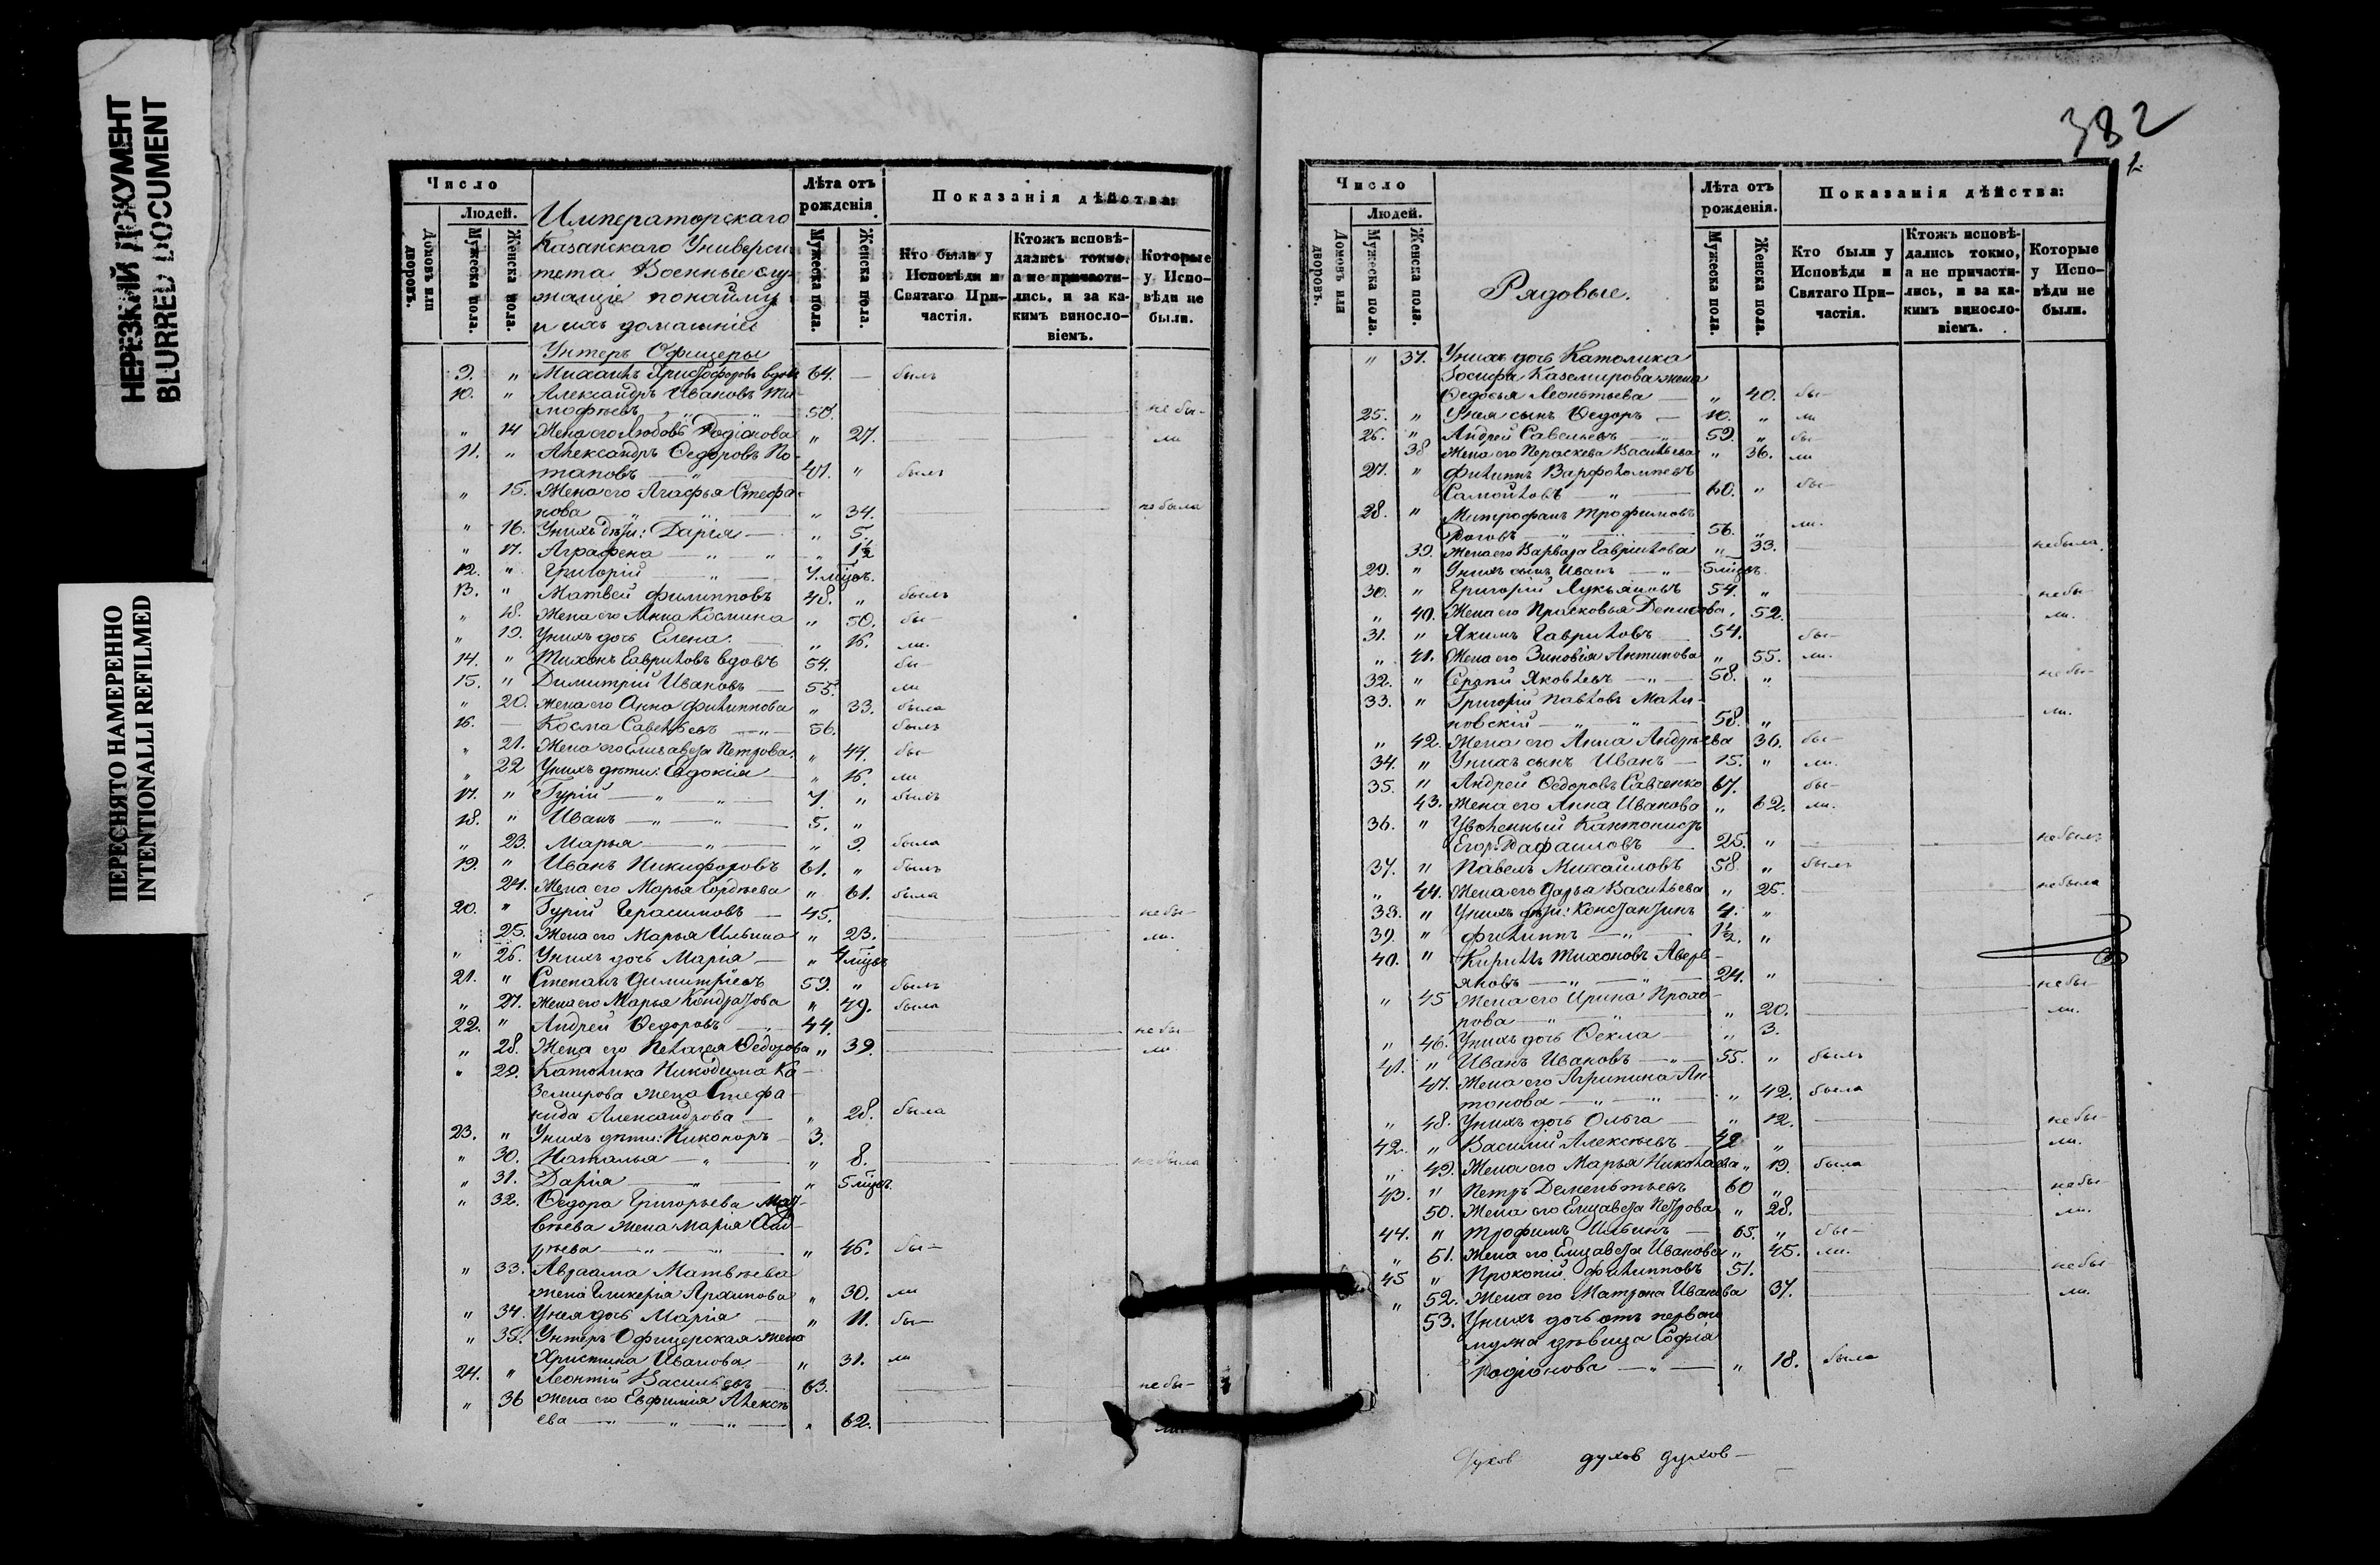 НЕРЕЗКИЙ ДОКУМЕНТ
BLURRED DOCUMENT
ПЕРЕСНЯТО НАМЕРЕННО
INTENTIONALLI REFILMED
Число
Людей.
Домовъ или дворовъ.
Мужеска пола.
Женска пола.
Императорскаго
Казанскаго Универси-
тета Военные слу-
жащіе по найму
и ихъ домашніе
Лѣта отъ рожденія.
Мужеска пола.
Женска пола.
Показанія дѣйства:
Кто были у Исповѣди и Святаго При-частія.
Ктожъ исповѣ-дались токмо, а не причасти-лись, и за ка-кимъ винослο-віемъ.
Которые у Испо-вѣди не были.
Унтеръ Офицеры
9. " Михаилъ Христофоровъ вдовъ 64. — былъ
10. " Александръ Ивановъ Ти-
мофѣевъ 50. не бы-
" 14 Жена его Любовь Родіонова " 27. ли
11. " Александръ Ѳедоровъ По-
таповъ 41. " былъ
" 15. Жена его Агафья Стефа-
нова " 34. не была
" 16. У нихъ дѣти: Дарія " 5.
" 17. Аграфена " 1½
12. " Григорій 7. мѣсъ.
13. " Матвей Филипповъ 48. " былъ
" 18. Жена его Анна Космина " 50. бы-
" 19. У нихъ дочь Елена " 16. ли.
14. " Тихонъ Гавриловъ вдовъ 54. бы-
15. " Димитрій Ивановъ 55. ли
" 20. Жена его Анна Филиппова " 33. была
16. — Косма Савельевъ 56. былъ
" 21. Жена его Елизавета Петрова " 44. бы-
" 22 У нихъ дѣти: Евдокія " 16. ли
17. " Гурій 7. " былъ
18. " Иванъ 5. "
" 23. Марья " 9. была
19. " Иванъ Никифоровъ 61. " былъ
24. Жена его Марья Гордѣева " 61. была
20. " Гурій Герасимовъ 45. не бы-
25. Жена его Марья Ильина " 23. ли.
" 26. У нихъ дочь Марія " 4 мѣсъ
21. " Степанъ Димитріевъ 59. " былъ
" 27. Жена его Марья Кондратова " 49. была
22. " Андрей Ѳедоровъ 44. не бы-
" 28. Жена его Пелагея Ѳедорова " 39. ли
" 29. Католика Никодима Ка-
земирова жена Стефа-
нида Александрова " 28. была
23. " У нихъ дѣти: Никоноръ 3.
" 30. Наталья " 8. не была
" 31. Дарія " 5 мѣсъ.
" 32. Ѳедора Григорьева Мат-
вѣева жена Марія Анд-
рѣева " 46. бы-
" 33. Авраама Матвѣева
жена Гликерія Архипова " 30. ли
" 34. У нея дочь Марія " 11. бы-
" 35. Унтеръ Офицерская жена
Христина Иванова " 31. ли
24. " Леонтій Васильевъ 63. не бы-
" 36 Жена его Евфимія Алексѣ-
ева " 62. ли.
382
Число
Людей.
Домовъ или дворовъ.
Мужеска пола.
Женска пола.
Рядовые.
Лѣта отъ рожденія.
Мужеска пола.
Женска пола.
Показанія дѣйства:
Кто были у Исповѣди и Святаго При-частія.
Ктожъ исповѣ-дались токмо, а не причасти-лись, и за ка-кимъ винослο-віемъ.
Которые у Испо-вѣди не были.
" 37. У нихъ дочь Католика
Іосифа Каземирова жена
Ѳедосья Леонтьева " 40. бы-
25. " У нея сынъ Ѳедоръ 10. " ли
26. " Андрей Савельевъ 59. " бы-
38 Жена его Параскева Васильева " 36. ли
27. " Филиппъ Варфоломѣевъ
Самойловъ 60. " бы-
28. " Митрофанъ Трофимовъ
Роговъ 56. " ли.
39. Жена его Варвара Гавріилова " 33. не была.
29. " У нихъ сынъ Иванъ 5 мѣсъ.
30. " Григорій Лукьяновъ 54. " не бы-
" 40. Жена его Прасковья Денисова 52. ли.
31. " Якимъ Гавриловъ 54. бы-
" 41. Жена его Зиновія Антипова " 55. ли.
32. " Сергій Яковлевъ 58. " не бы-
33. " Григорій Павловъ Мали-
новскій 58. " ли.
" 42. Жена его Анна Андрѣева 36. бы-
34. " У нихъ сынъ Иванъ 15. " ли.
35. " Андрей Ѳедоровъ Савченко 67. бы-
43. Жена его Анна Иванова " 62. ли.
36. " Уволенный Кантонистъ
Егоръ Рафаиловъ 25. " не былъ
37. " Павелъ Михайловъ 58. " былъ
" 44. Жена его Дарья Васильева " 25. не была
38. " У нихъ дѣти: Константинъ 4. "
39. " Филиппъ 1½. "
40. " Кириллъ Тихоновъ Аверь-
яновъ 24. " не бы-
" 45 Жена его Ирина Прохо-
рова " 20. ли.
" 46. У нихъ дочь Ѳекла " 3.
41. " Иванъ Ивановъ 55. " былъ
47. Жена его Агрипина Ан-
тонова " 42. была
" 48. У нихъ дочь Ольга " 12. не бы-
42. " Василій Алексѣевъ 42 " ли.
" 49. Жена его Марья Николаева " 19. была
43. " Петръ Дементьевъ 60 " не бы
50. Жена его Елизавета Петрова " 28. ли.
44. " Трофимъ Ильинъ 65. " бы-
" 51. Жена его Елизавета Иванова " 45. ли.
45 " Прокопій Филипповъ 51. не бы
" 52. Жена его Матрона Иванова 37. ли.
53. У нихъ дочь отъ перваго
мужа дѣвица Софія
Родіонова " 18. была
духов духов духов-